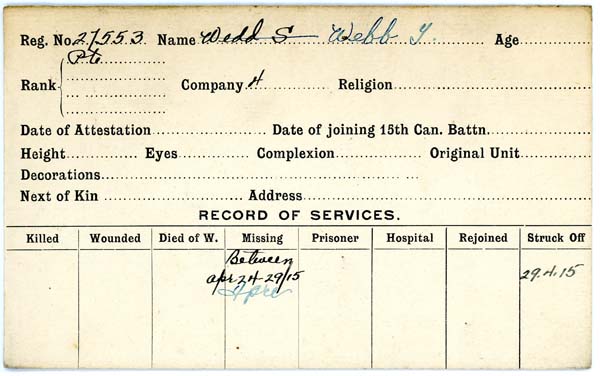 Reg. No. 27553 Name Wedd S Webb T. Age
Rank Pte Company 4 Religion
Date of Attestation Date of joining 15th Can. Battn.
Height Eyes Complexion Original Unit
Decorations
Next of Kin Address
RECORD OF SERVICES.
Killed Wounded Died of W. Missing Prisoner Hospital Rejoined Struck Off
Between
apr 24-29/15 29.4.15
Ypre